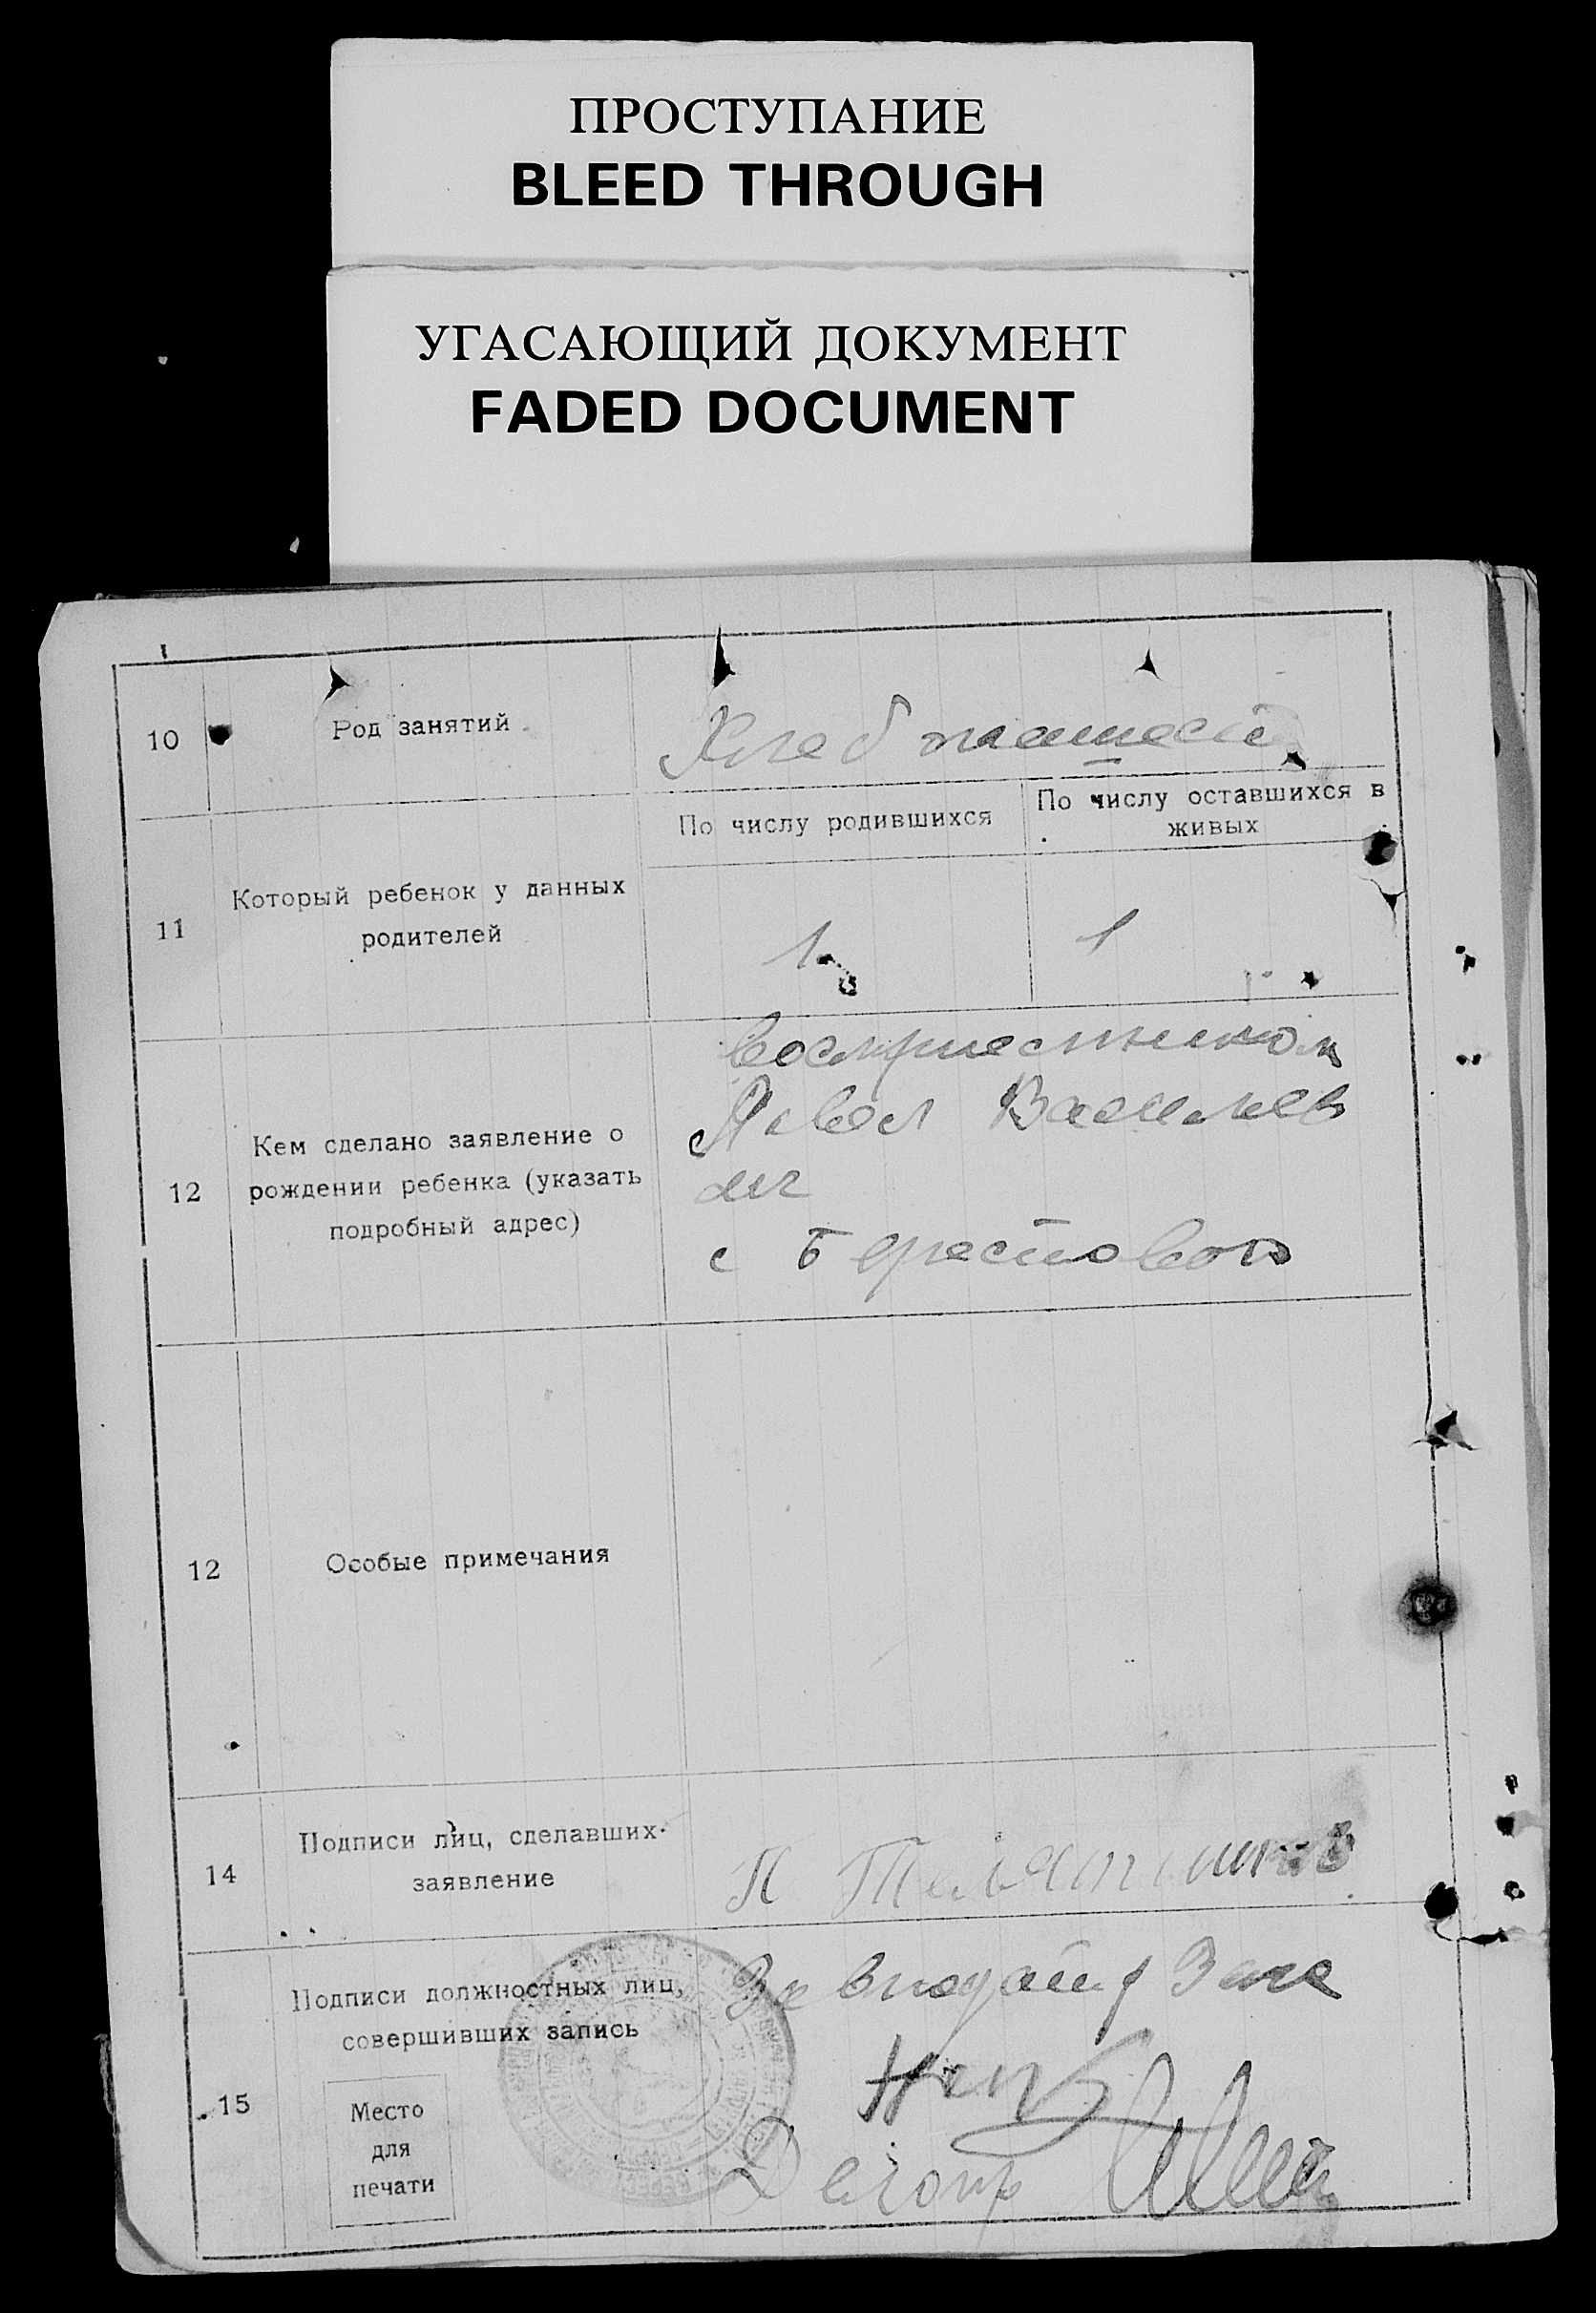 ПРОСТУПАНИЕ
BLEED THROUGH
УГАСАЮЩИЙ ДОКУМЕНТ
FADED DOCUMENT
10
Род занятий
Хлебпашест
По числу родившихся
По числу оставшихся в
живых
11
Который ребенок у данных
родителей
1
1
12
Кем сделано заявление о
рождении ребенка (указать
подробный адрес)
восприемником
Павел Васильев
с Берестовой
12
Особые примечания
14
Подписи лиц, сделавших
заявление
П
15
Подписи должностных лиц,
совершивших запись
Место
для
печати
Делопр